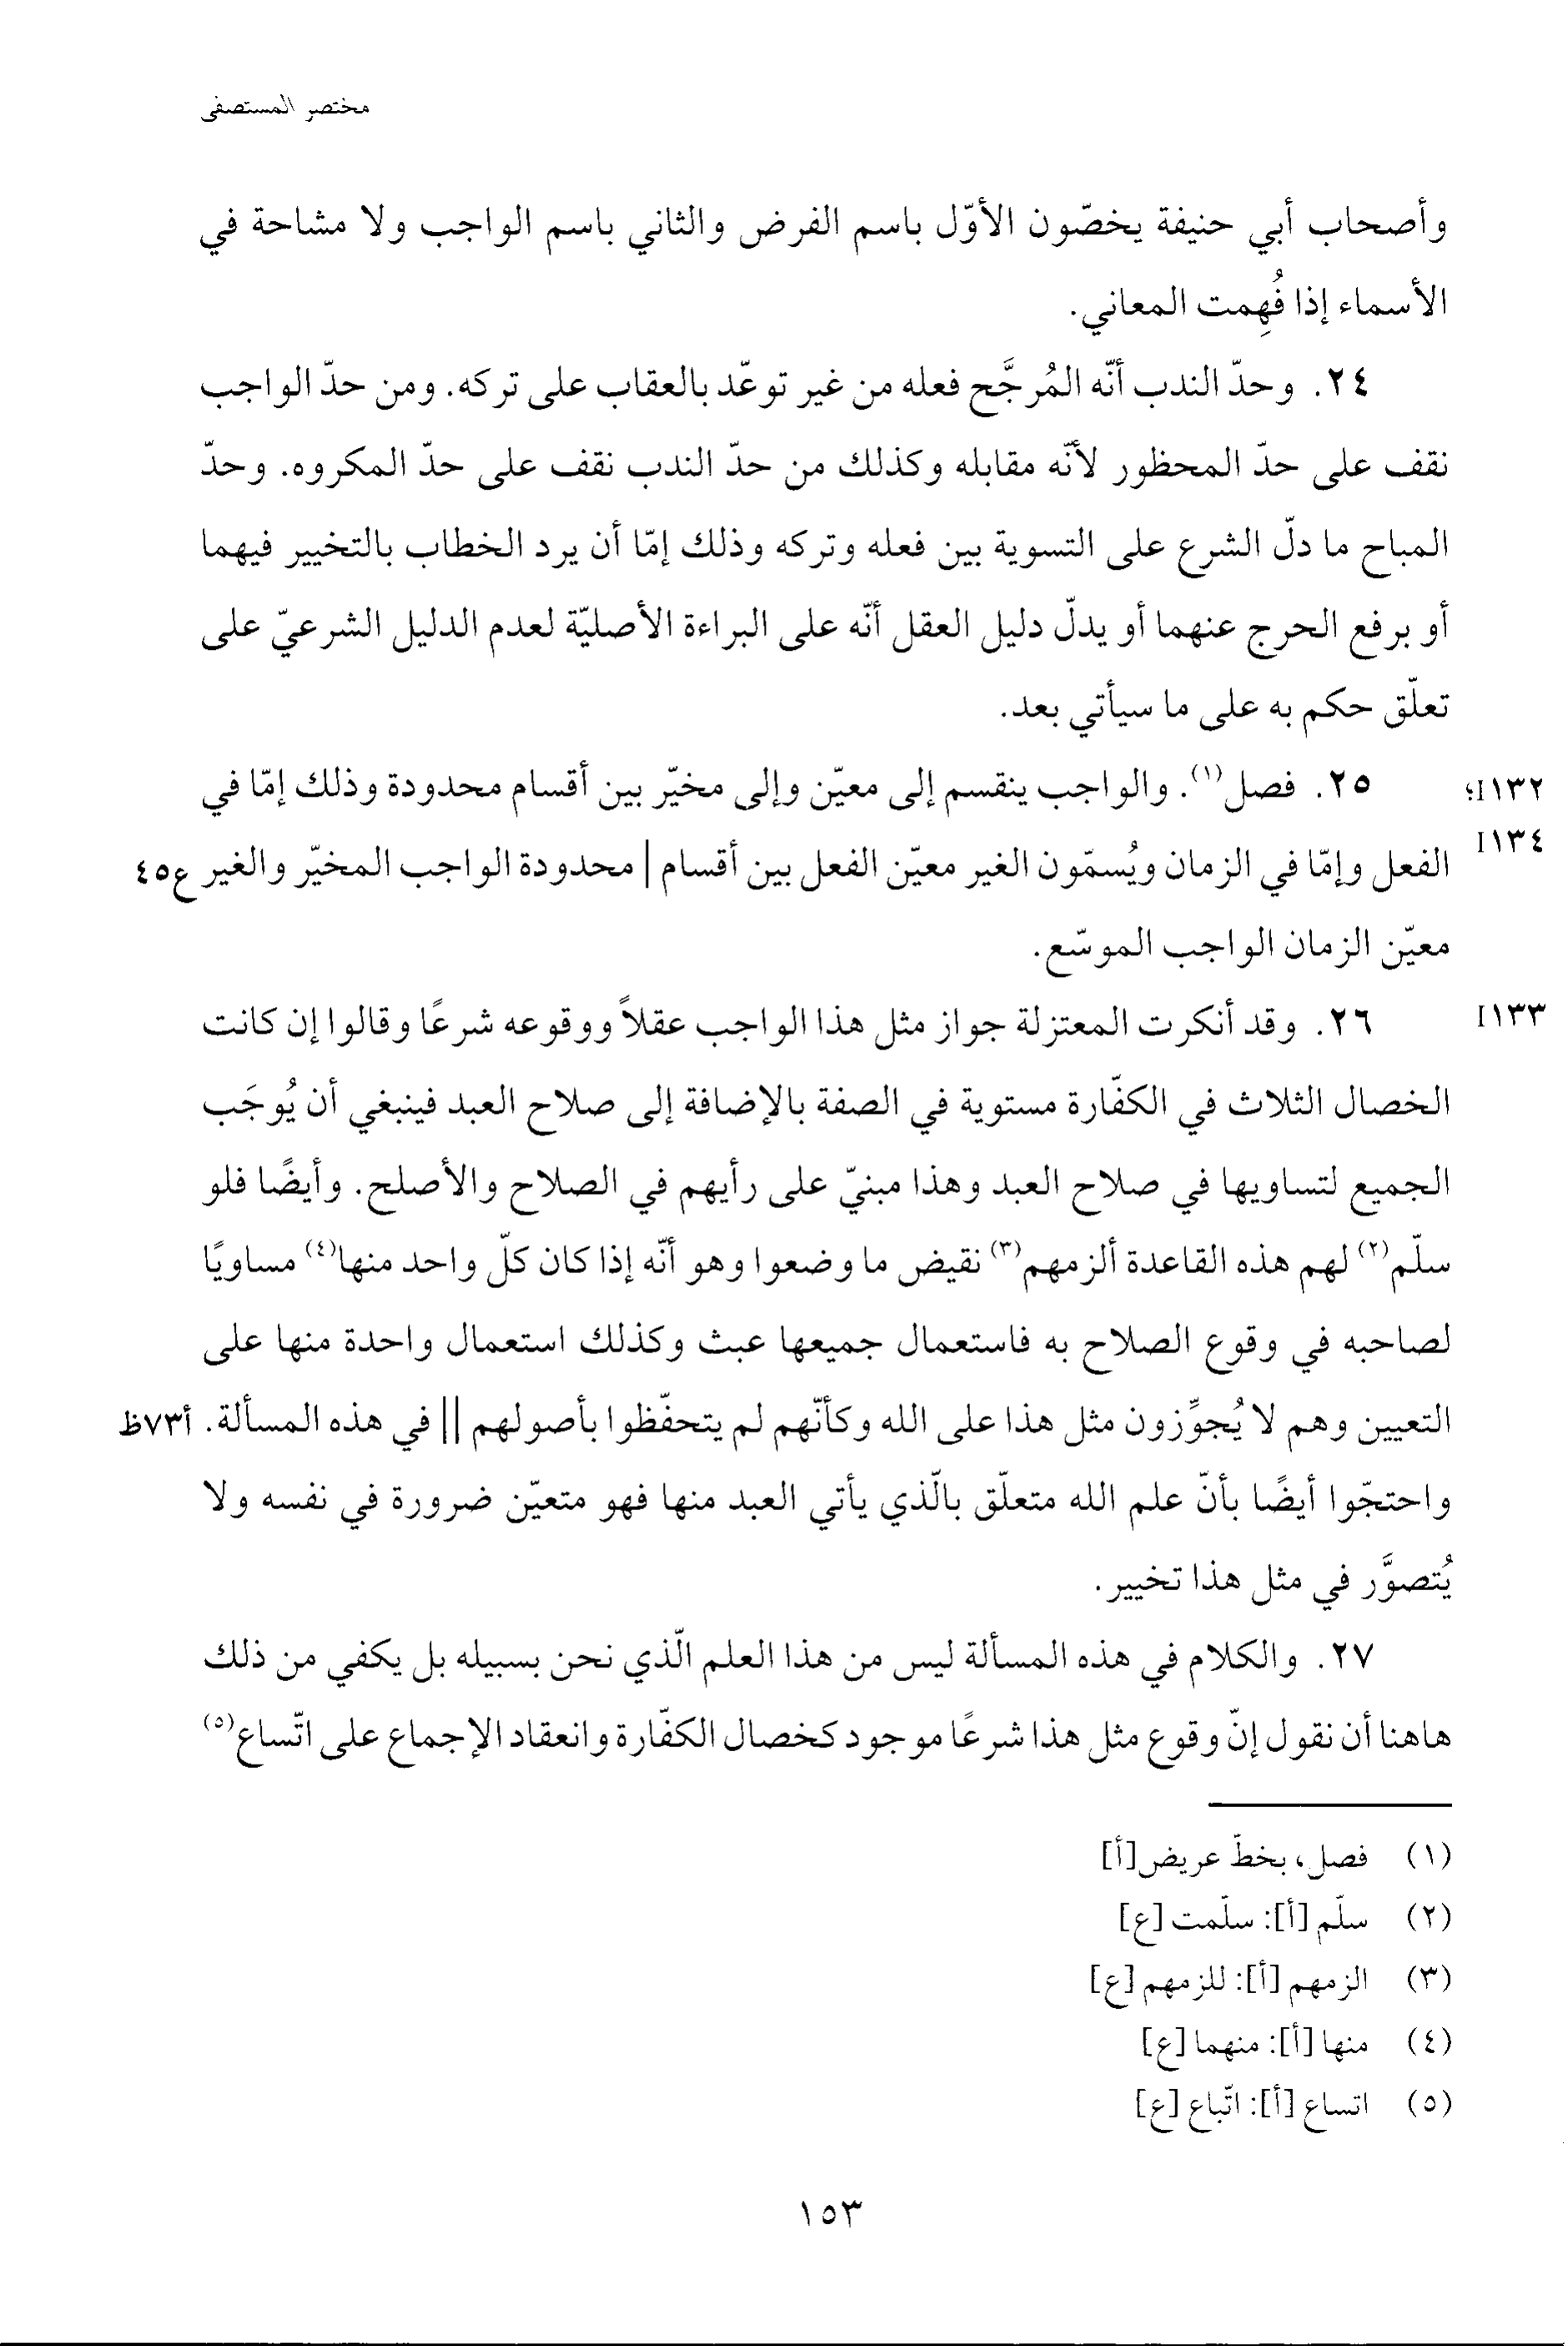 مختصر المستصفى
وأصحاب أبي حنيفة يخصّون الأوّل باسم الفرض والثاني باسم الواجب ولا مشاحة في
الأسماء إذا فُهِمت المعاني.
٢٤. وحدّ الندب أنّه المُرجَّح فعله من غير توعّد بالعقاب على تركه. ومن حدّ الواجب
نقف على حدّ المحظور لأنّه مقابله وكذلك من حدّ الندب نقف على حدّ المكروه. وحدّ
المباح ما دلّ الشرع على التسوية بين فعله وتركه وذلك إمّا أن يرد الخطاب بالتخيير فيهما
أو برفع الحرج عنهما أو يدلّ دليل العقل أنّه على البراءة الأصليّة لعدم الدليل الشرعيّ على
تعلّق حكم به على ما سيأتي بعد.
٢٥. فصل(١). والواجب ينقسم إلى معيّن وإلى مخيّر بين أقسام محدودة وذلك إمّا في
I١٣٢؛
I١٣٤
الفعل وإمّا في الزمان ويُسمّون الغير معيّن الفعل بين أقسام | محدودة الواجب المخيّر والغير ع٤٥
معيّن الزمان الواجب الموسّع.
I١٣٣
٢٦. وقد أنكرت المعتزلة جواز مثل هذا الواجب عقلاً ووقوعه شرعًا وقالوا إن كانت
الخصال الثلاث في الكفّارة مستوية في الصفة بالإضافة إلى صلاح العبد فينبغي أن يُوجَب
الجميع لتساويها في صلاح العبد وهذا مبنيّ على رأيهم في الصلاح والأصلح. وأيضًا فلو
سلّم(٢) لهم هذه القاعدة ألزمهم(٣) نقيض ما وضعوا وهو أنّه إذا كان كلّ واحد منها(٤) مساويًا
لصاحبه في وقوع الصلاح به فاستعمال جميعها عبث وكذلك استعمال واحدة منها على
التعيين وهم لا يُجوِّزون مثل هذا على الله وكأنّهم لم يتحفّظوا بأصولهم || في هذه المسألة. أ٧٣ظ
واحتجّوا أيضًا بأنّ علم الله متعلّق بالّذي يأتي العبد منها فهو متعيّن ضرورة في نفسه ولا
يُتصوَّر في مثل هذا تخيير.
٢٧. والكلام في هذه المسألة ليس من هذا العلم الّذي نحن بسبيله بل يكفي من ذلك
هاهنا أن نقول إنّ وقوع مثل هذا شرعًا موجود كخصال الكفّارة وانعقاد الإجماع على اتّساع(٥)
(١) فصل، بخطّ عريض[أ]
(٢) سلّم [أ]: سلّمت [ع]
(٣) الزمهم [أ]: للزمهم [ع]
(٤) منها [أ]: منهما [ع]
(٥) اتساع [أ]: اتّباع [ع]
١٥٣